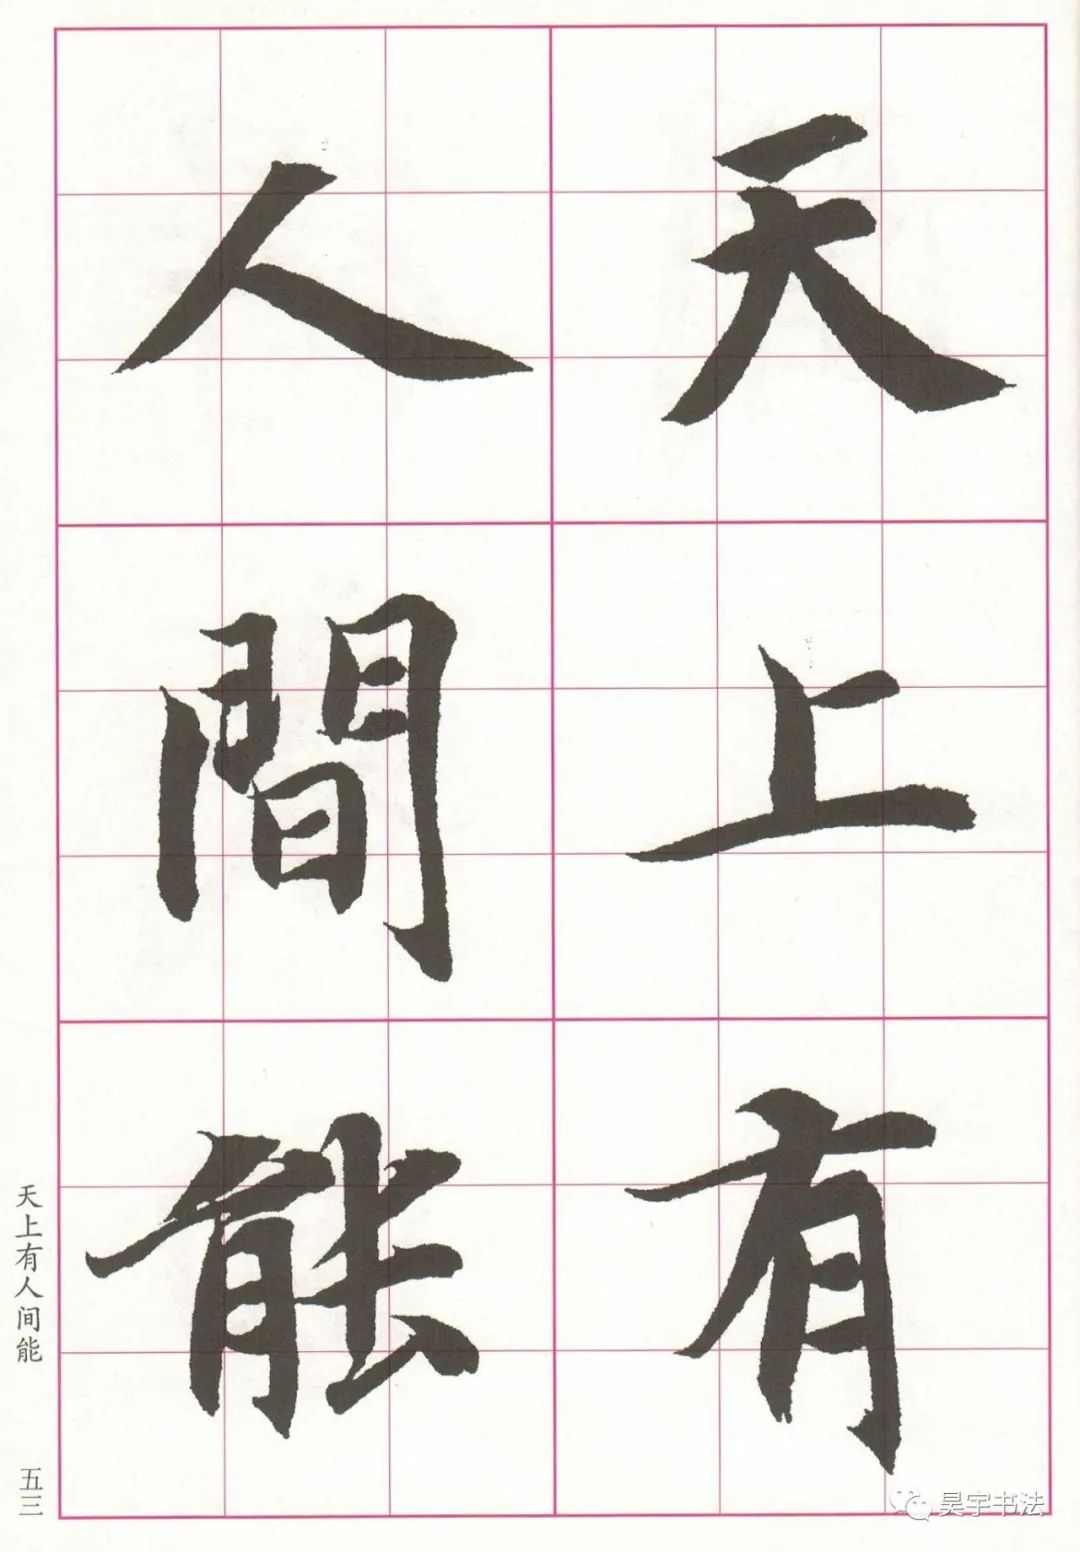 天上有
人間能
天上有人间能
五三
昊宇书法